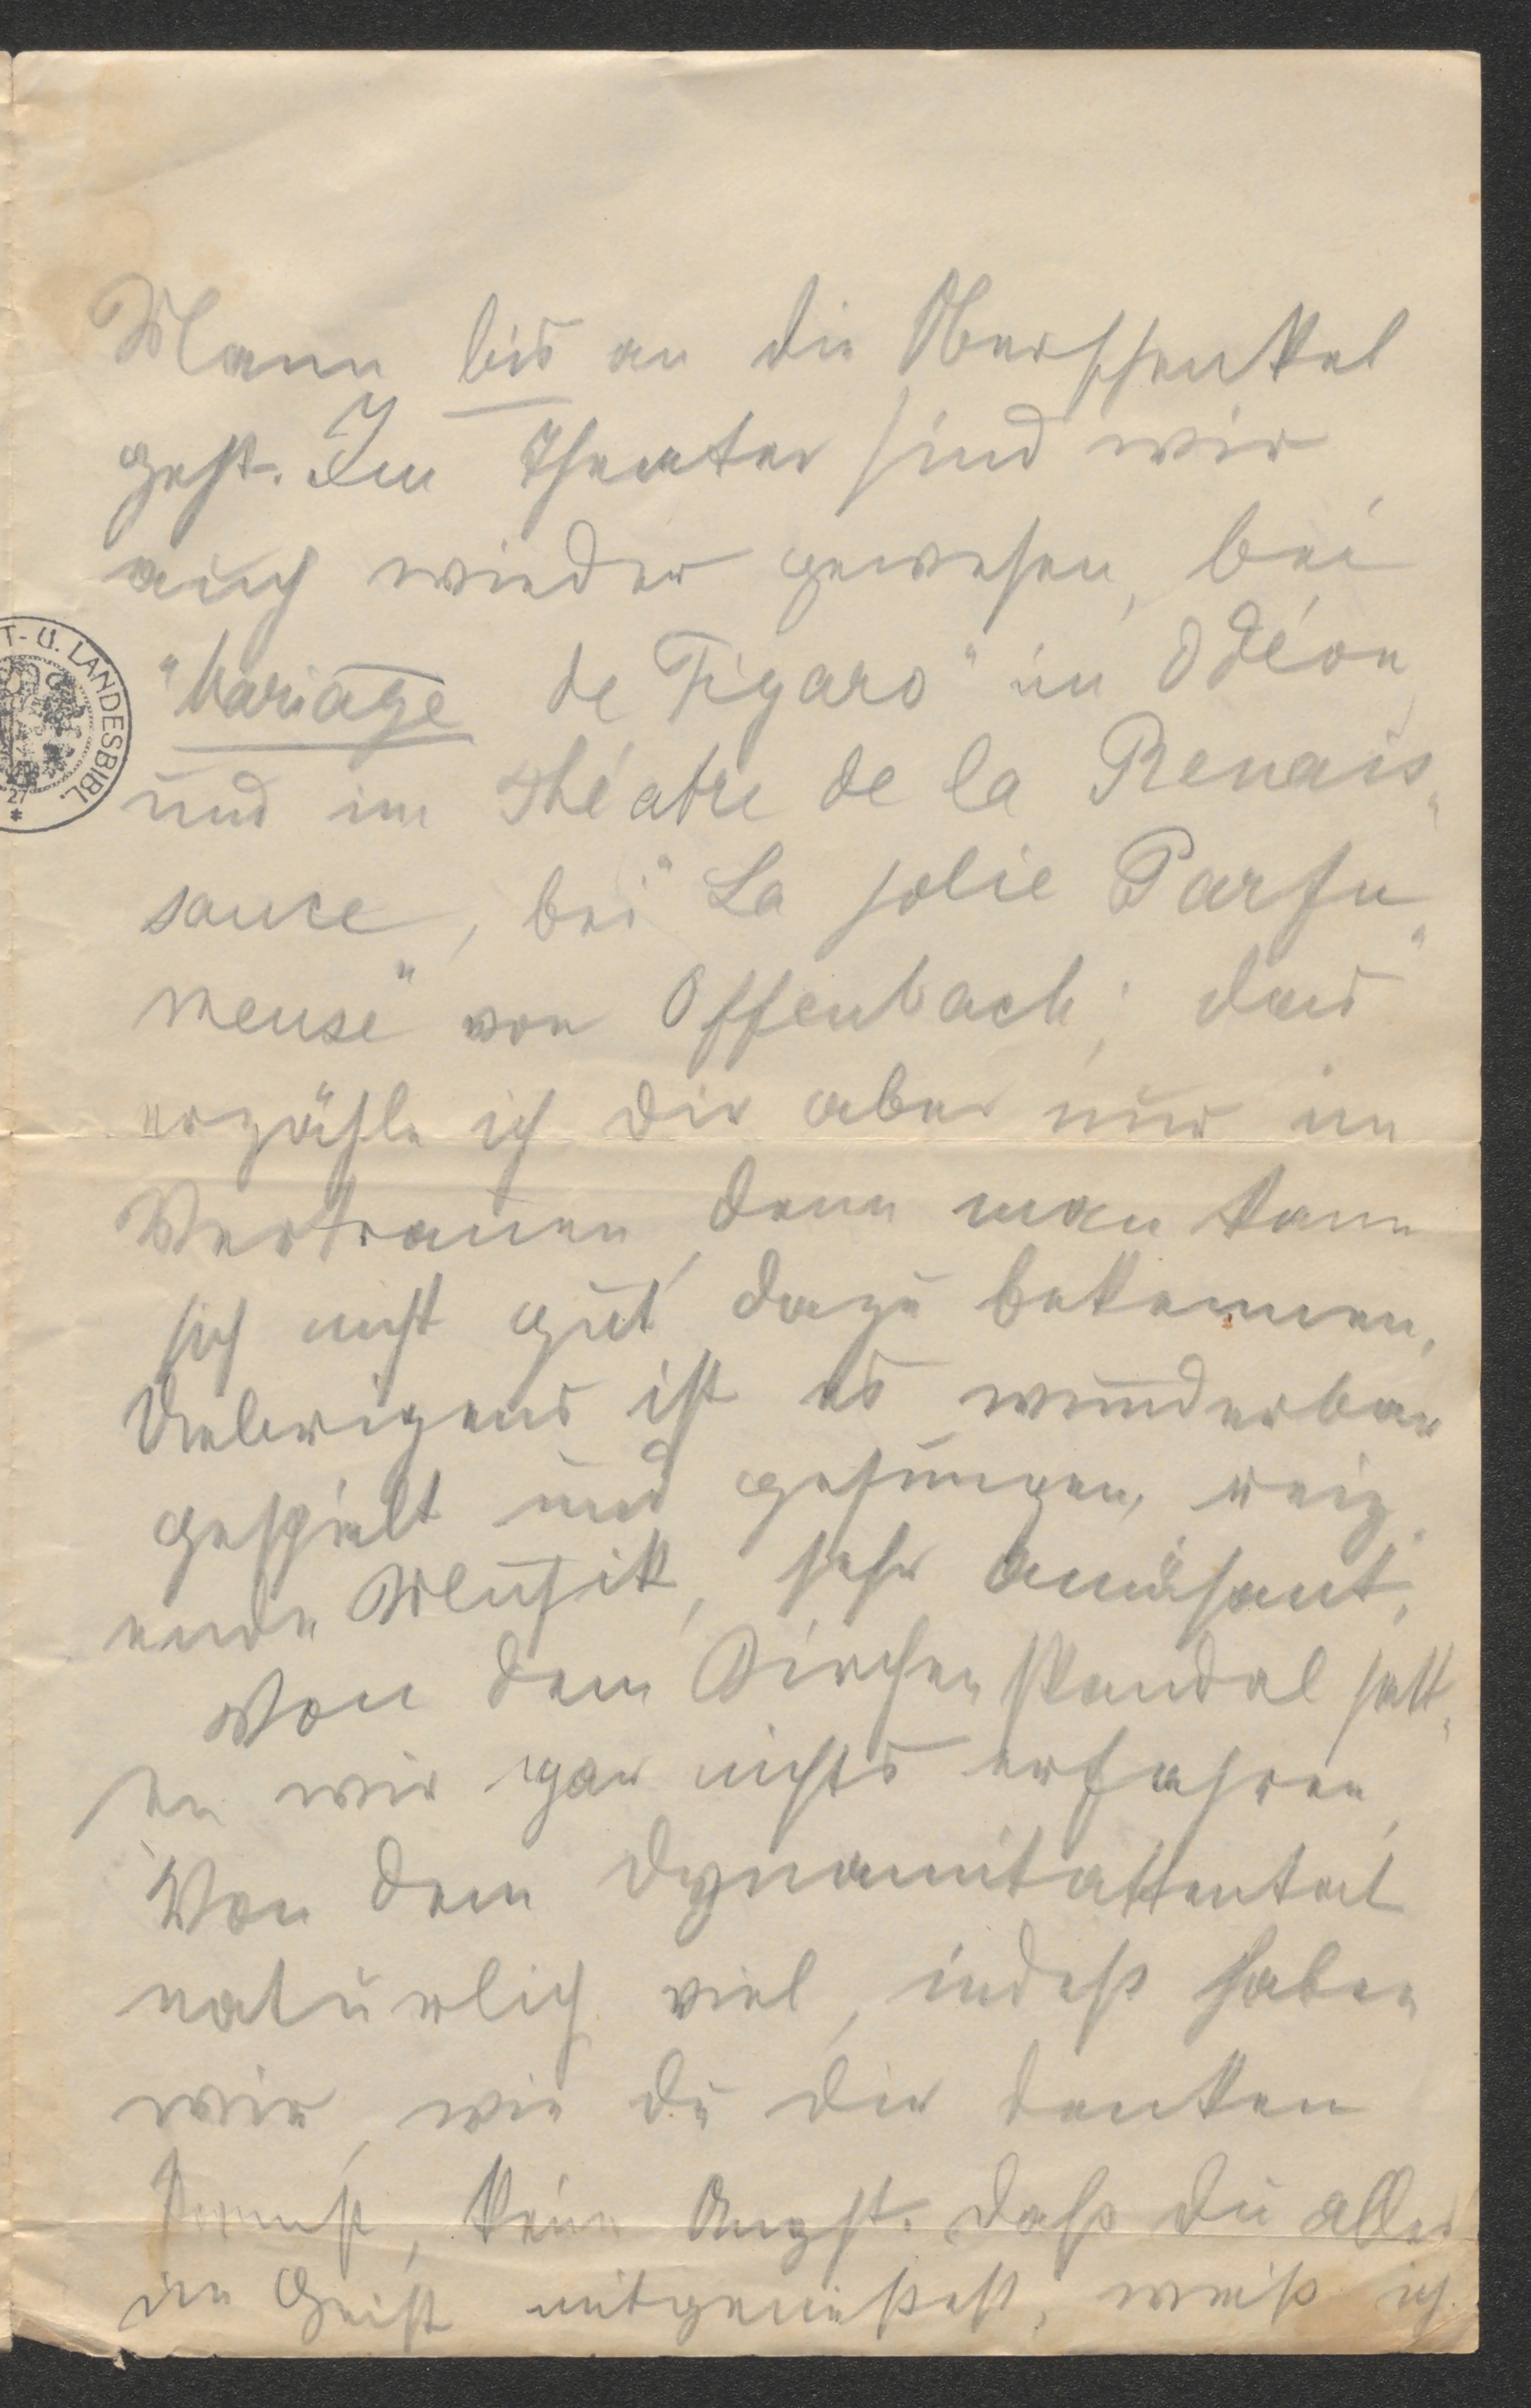 Mann bis an die Oberschenkel
geht. Im Theater sind wir
auch wieder gewesen, bei
"Mariage de Figaro" im Odéon,
und im Théatre de la Renais-
sance, bei "La jolie Parfu-
meuse" von Offenbach; das
erzähle ich dir aber nur im
Vertrauen, denn man kann
sich nicht gut dazu bekennen.
Uebrigens ist es wunderbar
gespielt und gesungen, reiz-
ende Musik, sehr amüsant.
Von dem Kirchenskandal hatt-
en wir gar nichts erfahren,
Von dem Dynamitattentat
natürlich viel, indeß haben
wir, wie du dir denken
kannst, keine Angst. Daß du alles
im Geist mitgenießest, weiß ich
T- U. LANDESBIBL.
27